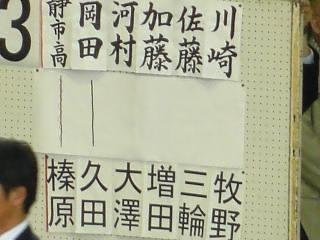 川崎
佐藤
加藤
河村
岡田
静市高
3
牧野
三輪
増田
大澤
久田
榛原